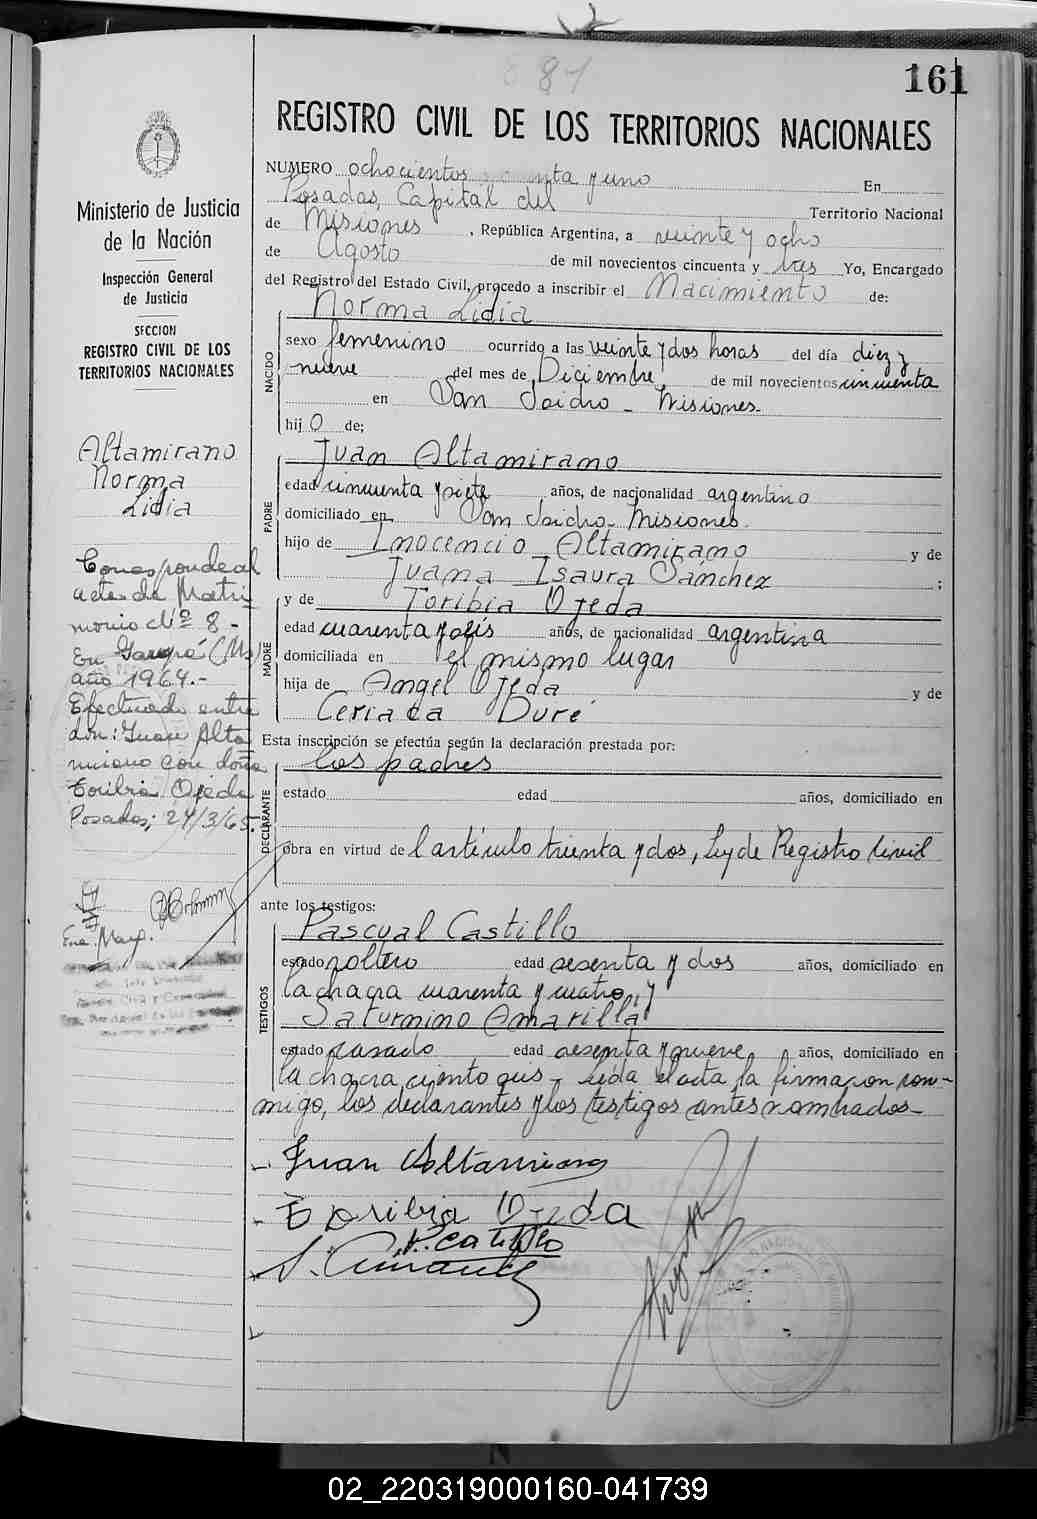 881
161
REGISTRO CIVIL DE LOS TERRITORIOS NACIONALES
Ministerio de Justicia
de la Nación
Inspección General
de Justicia
SECCION
REGISTRO CIVIL DE LOS
TERRITORIOS NACIONALES
Altamirano
Norma
Lidia
Corresponde al
acta de Matri
monio Nº 8 -
En (Ms)
año 1964.-
Efectuado entre
don: Juan Alta
mirano con doña
Toribia Ojeda
Posadas; 24/3/65.
NUMERO ochocientos y uno En
Posadas, Capital del Territorio Nacional
de Misiones, República Argentina, a veinte y ocho
de Agosto de mil novecientos cincuenta y tres Yo, Encargado
del Registro del Estado Civil, procedo a inscribir el Nacimiento de:
NACIDO
Norma Lidia
sexo femenino ocurrido a las veinte y dos horas del día diez y
nueve del mes de Diciembre, de mil novecientos cincuenta
en San Isidro - Misiones-
hijo de;
PADRE
Juan Altamirano
edad cincuenta y siete años, de nacionalidad argentino
domiciliado en San Isidro- Misiones-
hijo de Inocencio Altamirano y de
Juana Isaura Sánchez ;
MADRE
y de Toribia Ojeda
edad cuarenta y seis años, de nacionalidad argentina
domiciliada en el mismo lugar
hija de Angel Ojeda y de
Duré
Esta inscripción se efectúa según la declaración prestada por:
DECLARANTE
los padres
estado edad años, domiciliado en
obra en virtud del artículo treinta y dos, Ley de Registro Civil
ante los testigos:
TESTIGOS
Pascual Castillo
estado soltero edad sesenta y dos años, domiciliado en
la chacra cuarenta y cuatro, y
Saturnino Amarilla
estado casado edad sesenta y nueve años, domiciliado en
la chacra ciento seis - leída el acta la firmaron con-
migo, los declarantes y los testigos antes nombrados-
Juan Altamirano
Toribia Ojeda
P. Castillo
S.
02_220319000160-041739